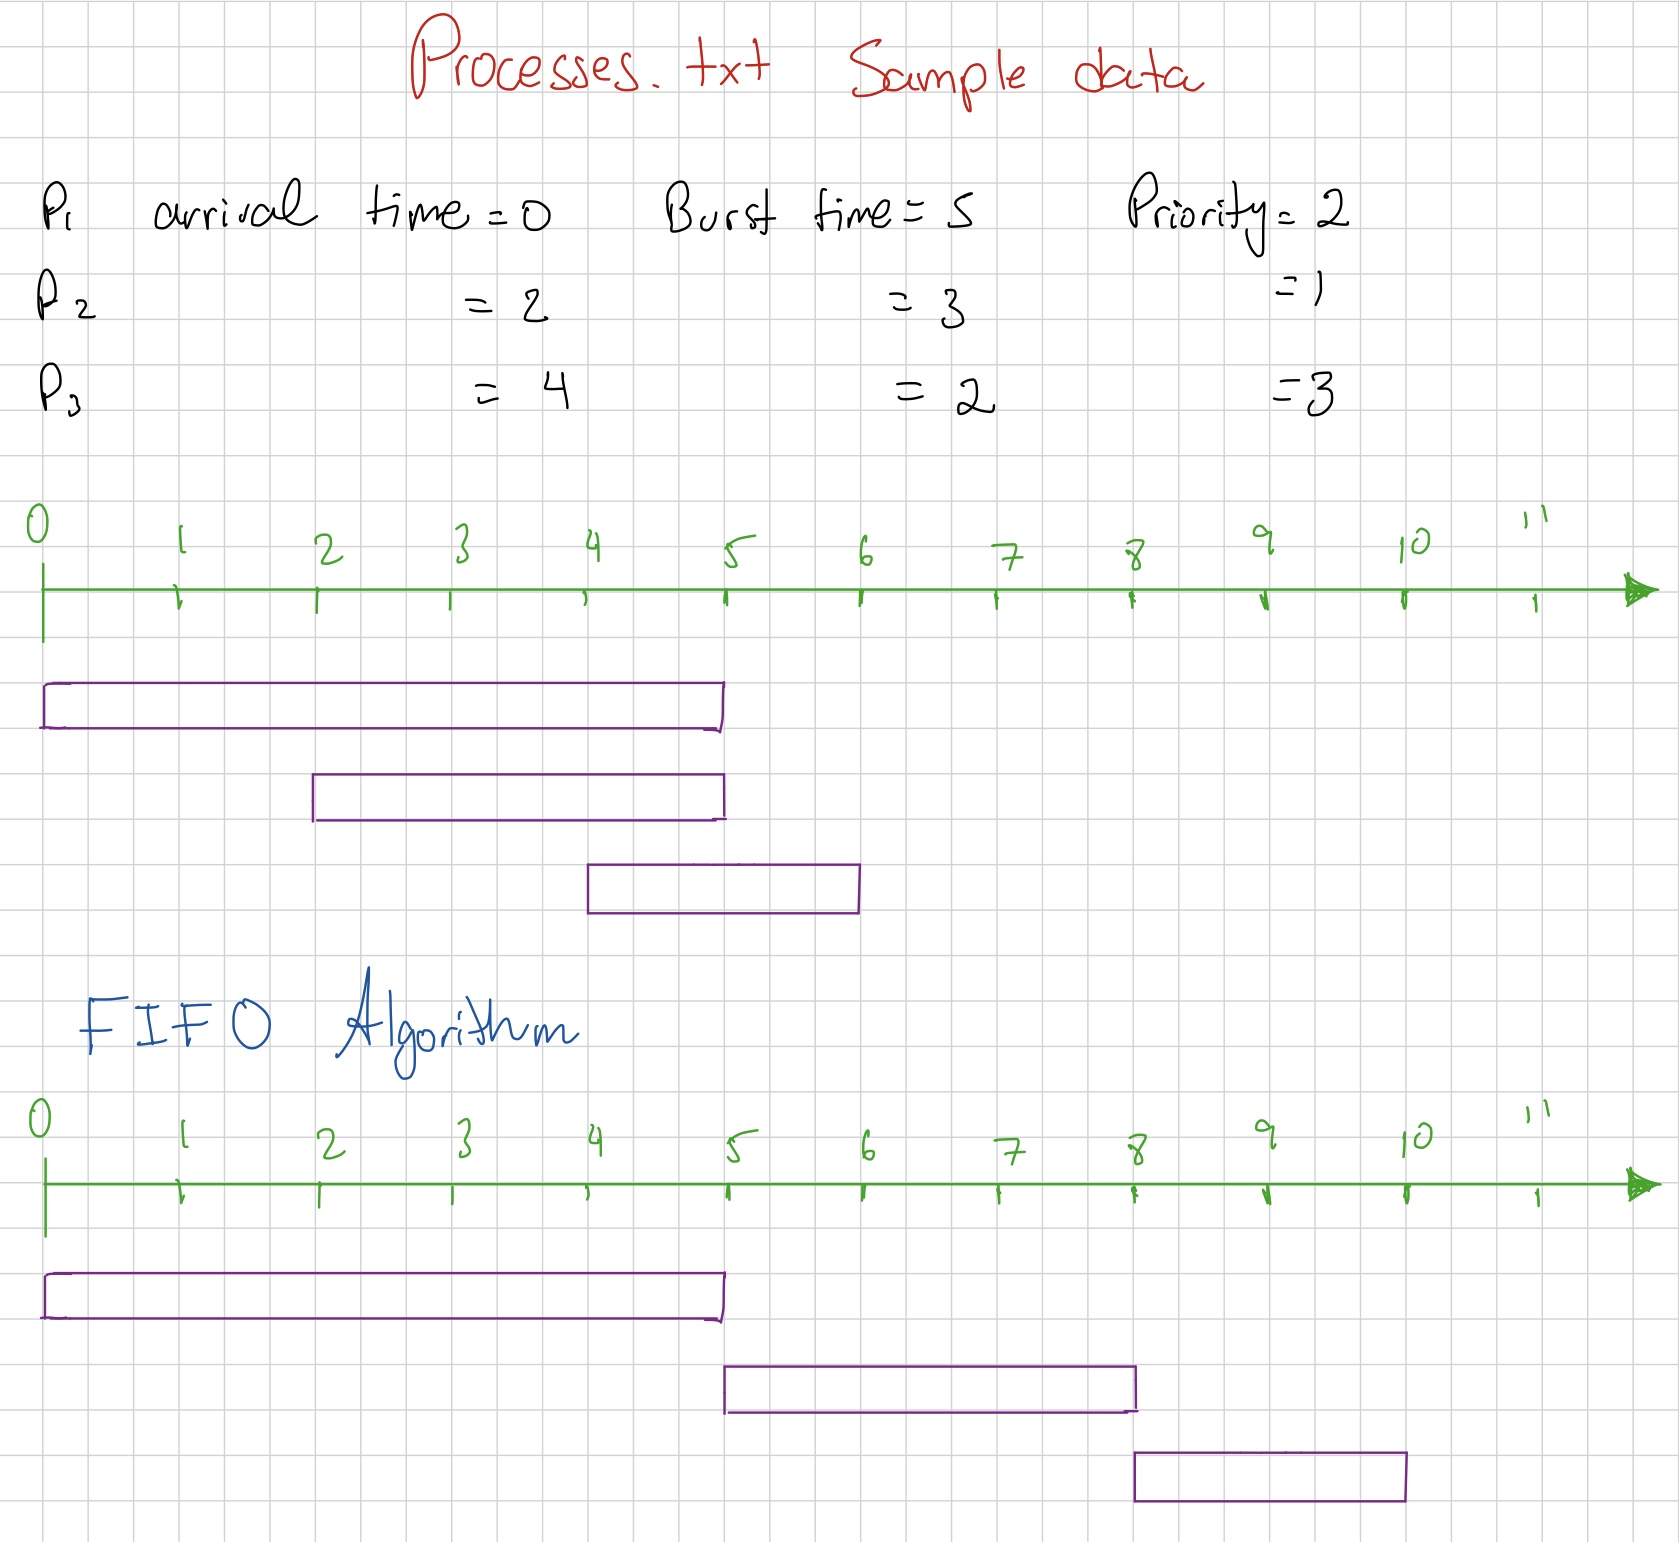 Processes.txt Sample data
P1 arrival time = 0 Burst time = 5 Priority = 2
P2 = 2 = 3 = 1
P3 = 4 = 2 = 3
0 1 2 3 4 5 6 7 8 9 10 11
FIFO Algorithm
0 1 2 3 4 5 6 7 8 9 10 11